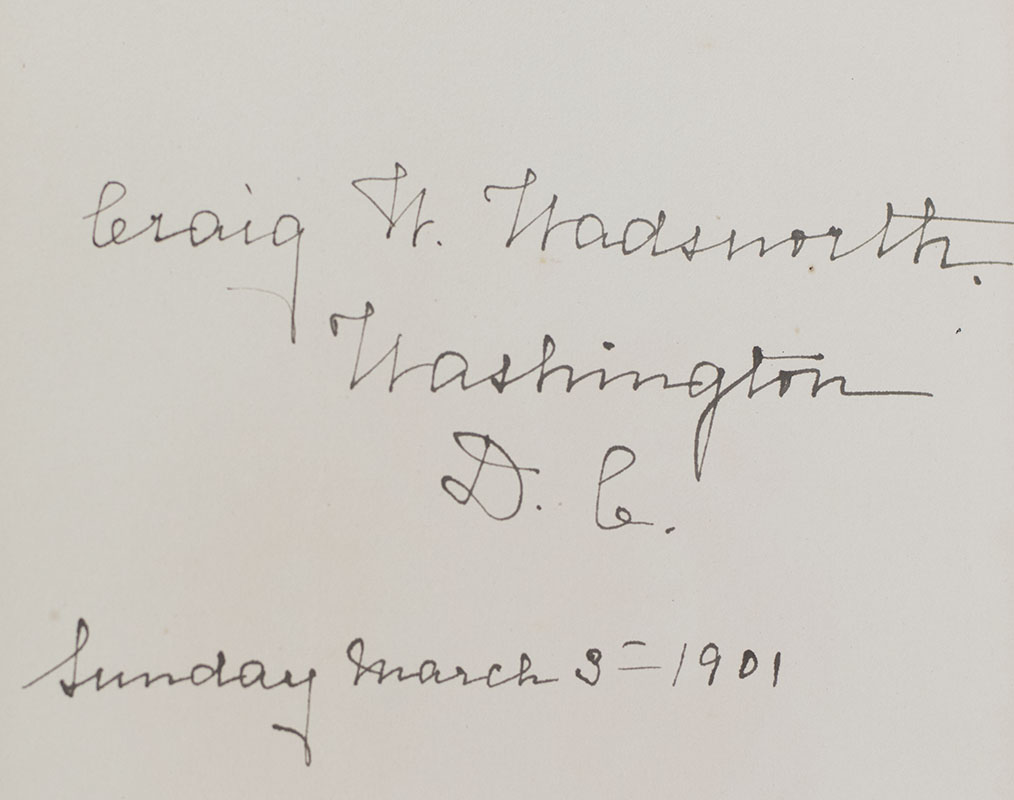 Craig W. Wadsworth.
Washington
D. C.
Sunday March 3= 1901